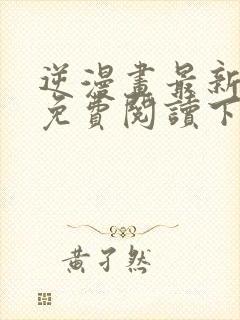 逆漫畫最新
免費閱讀下
黃孑然